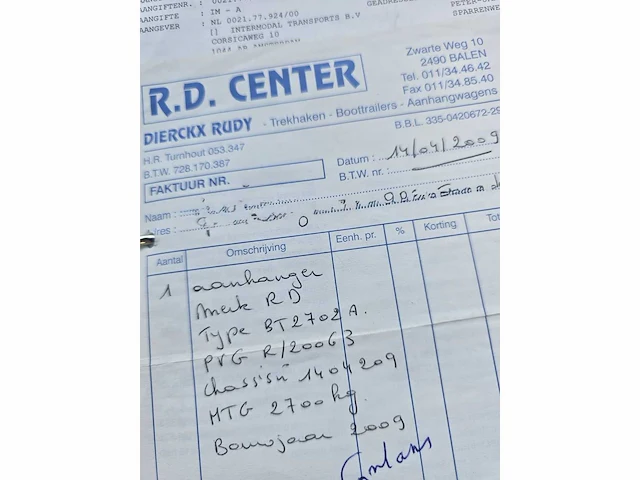 AANGIFTENR. : 0021.7
AANGIFTE : IM - A
AANGEVER : NL 0021.77.924/00
[] INTERMODAL TRANSPORTS B.V
CORSICAWEG 10
GEADRES
PETER-
SPARRENWE
R.D. CENTER
DIERCKX RUDY - Trekhaken - Boottrailers - Aanhangwagens
Zwarte Weg 10
2490 BALEN
Tel. 011/34.46.42
Fax 011/34.85.40
H.R. Turnhout 053.347
B.T.W. 728.170.387
B.B.L. 335-0420672-29
FAKTUUR NR.
Datum : 14/04/2009
B.T.W. nr. :
Naam :
Adres :
Aantal Omschrijving Eenh. pr. % Korting Tot
1 aanhanger
Merk RD
Type BT2702A.
PVG R/20063
Chassisn 1404209
MTG 2700 kg.
Bouwjaar 2009